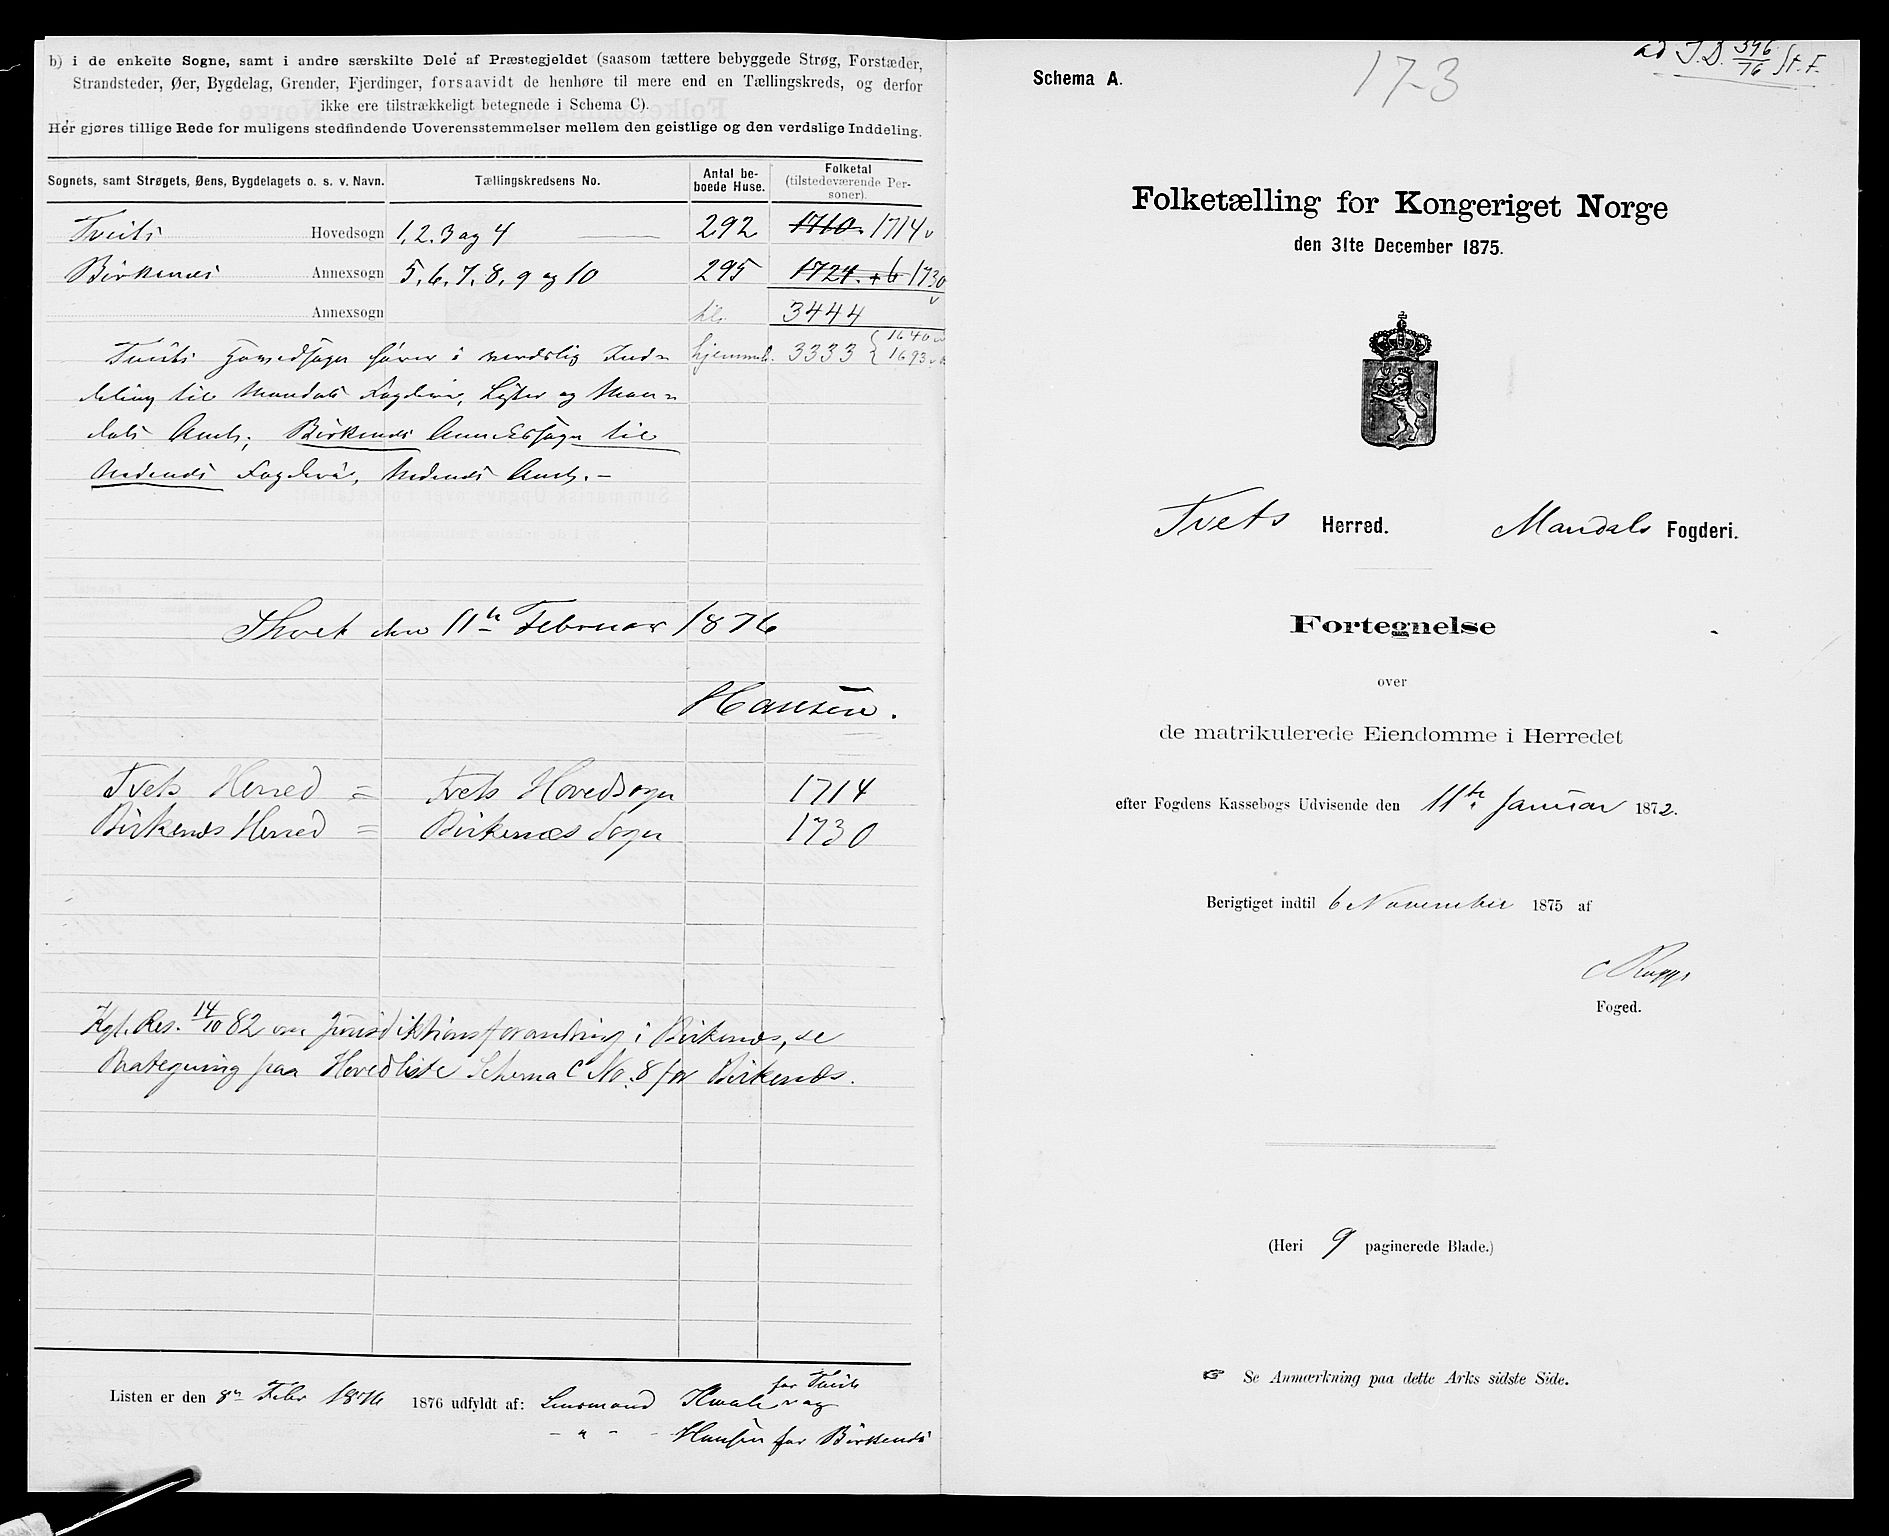 b) i de enkelte Sogne, samt i andre særskilte Dele af Præstegjeldet (saasom tættere bebyggede Strøg, Forstæder,
Strandsteder, Øer, Bygdelag, Grender, Fjerdinger, forsaavidt de henhøre til mere end en Tællingskreds, og derfor
ikke ere tilstrækkeligt betegnede i Schema C).
Her gjøres tillige Rede for muligens stedfindende Uoverensstemmelser mellem den geistlige og den verdslige Inddeling.
Sognets, samt Strøgets, Øens, Bygdelagets o. s. v. Navn. Tællingskredsens No. Antal beboede Huse. Folketal (tilstedeværende Personer).
Tveits Hovedsogn 1, 2. 3 og 4 292 1710. 1714
Birkenæs Annexsogn 5, 6. 7. 8. 9 og 10 295 1724. + 6 1730
Annexsogn til. 3444
hjemmeh. 3333 { 1640 1693
Tveits Hovedsogn hører i verdslig Ind-
deling til Mandals Fogderi, Lister og Man-
dals Amt; Birkenæs Annexsogn til
Nedenæs Fogderi, Nedenæs Amt. -
Thvet den 11te Februar 1876
Hansen.
Tvets Herred = Tvets Hovedsogn 1714
Birkenæs Herred = Birkenæs Sogn 1730
Kgl. Res. 14/10 82 om Jurisdiktionsforandring i Birkenæs, se
Paategning paa Hovedliste Schema C No. 8 for Birkenæs.
Listen er den 8de Febr 1876 1876 udfyldt af: Lensmand for Tveit og
- " - Hansen for Birkenæs
ad J. D. 396/76 St. F.
Schema A.
173
Folketælling for Kongeriget Norge
den 31te December 1875.
Tvets Herred. Mandals Fogderi.
Fortegnelse
over
de matrikulerede Eiendomme i Herredet
efter Fogdens Kassebogs Udvisende den 11te Januar 1872.
Berigtiget indtil 6 November 1875 af
Foged.
(Heri 9 paginerede Blade.)
☞ Se Anmærkning paa dette Arks sidste Side.